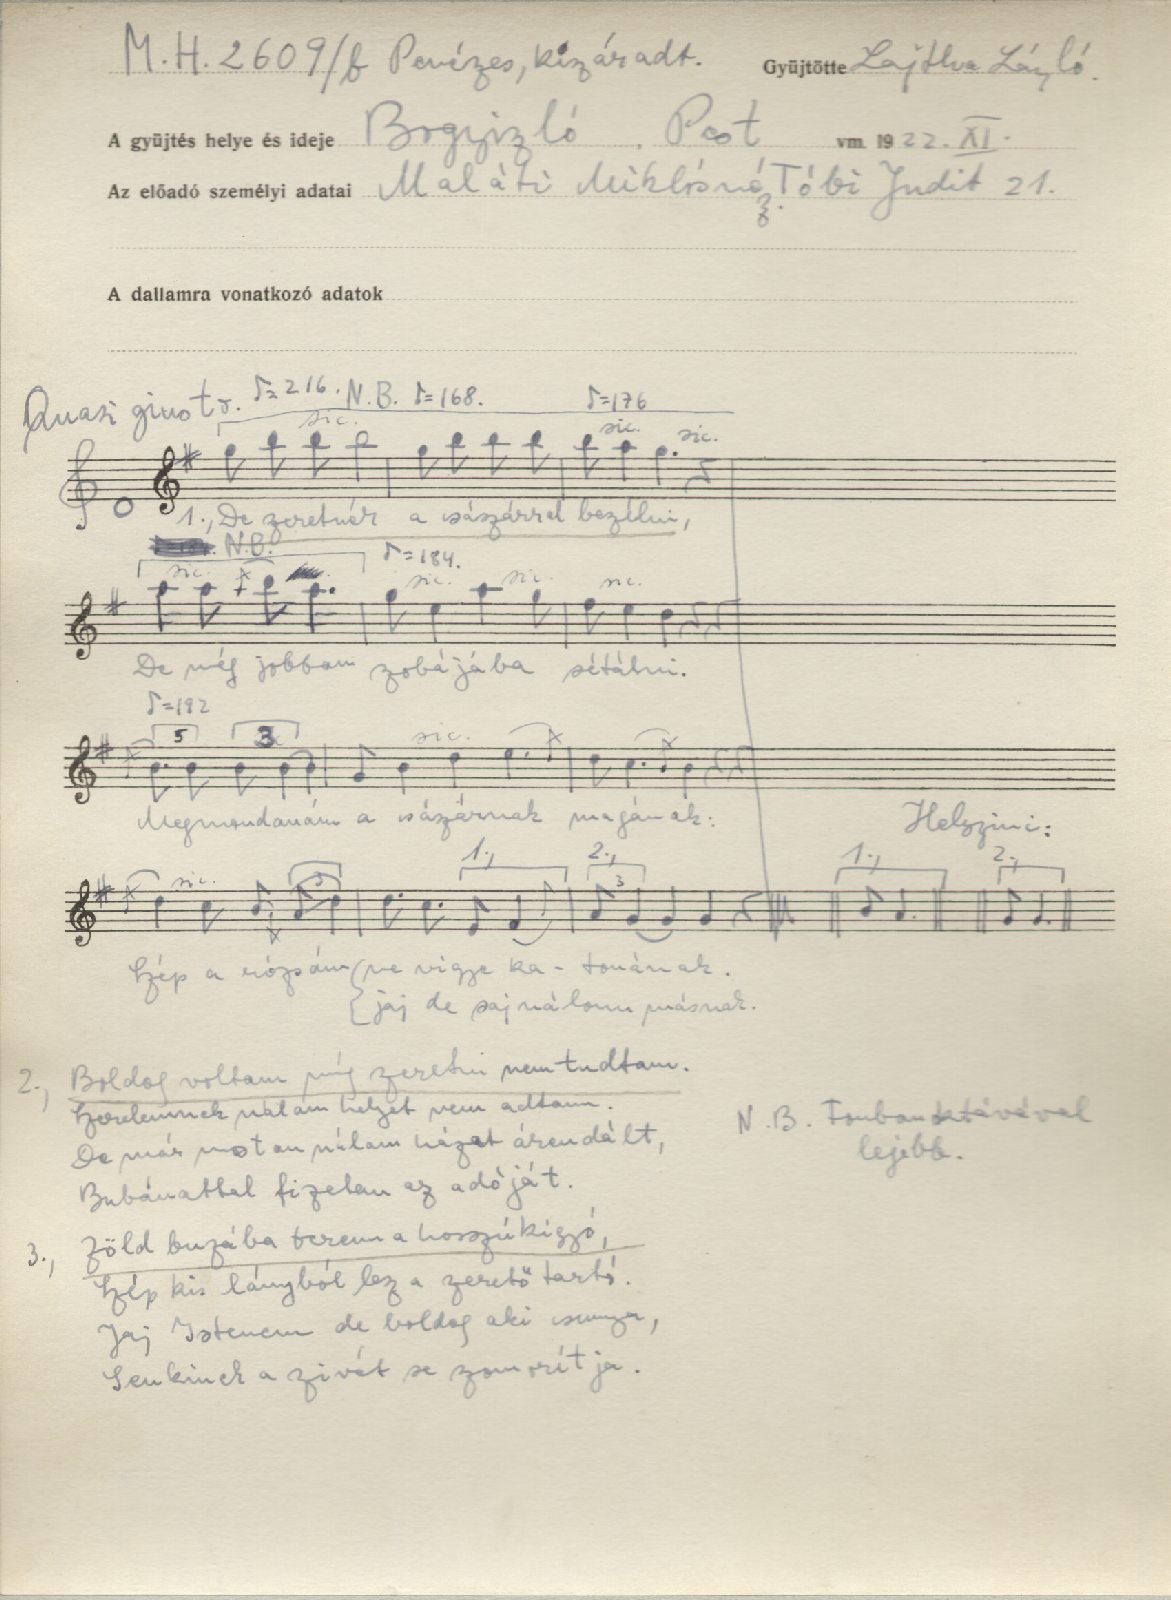 M.H. 2609/f Penézes, kiszáradt. Gyűjtötte Lajtha László.
A gyűjtés helye és ideje Bogyiszló . Pest vm. 1922. XI.
Az előadó személyi adatai Maláti Miklósné Tóbi Judit 21.
sz.
A dallamra vonatkozó adatok
Quasi giusto ♪=216. N.B. ♪=168. ♪=176
sic. sic. sic.
1., De szeretnék a császárral beszélni,
N.B. ♪=184.
sic. sic. sic. sic.
De még jobban szobájába sétálni.
♪=192
5 3 sic.
Megmondanám a császárnak magának: Helyszini:
sic. 3 1., 2., 3 1., 2.,
Szép a rózsám ne vigye ka - tonának.
jaj de sajnálom másnak.
2., Boldog voltam míg szeretni nem tudtam.
Szerelemnek nálam helyet nem adtam.
De már mostan nálam házat árendált,
Bubánattal fizetem az adóját.
N.B. Tonban oktávával
lejebb.
3., Zöld buzába terem a hosszú kigyó,
Szép kis lányból lesz a szerető tartó.
Jaj Istenem de boldog aki csunya,
Senkinek a szivét se szomorítja.